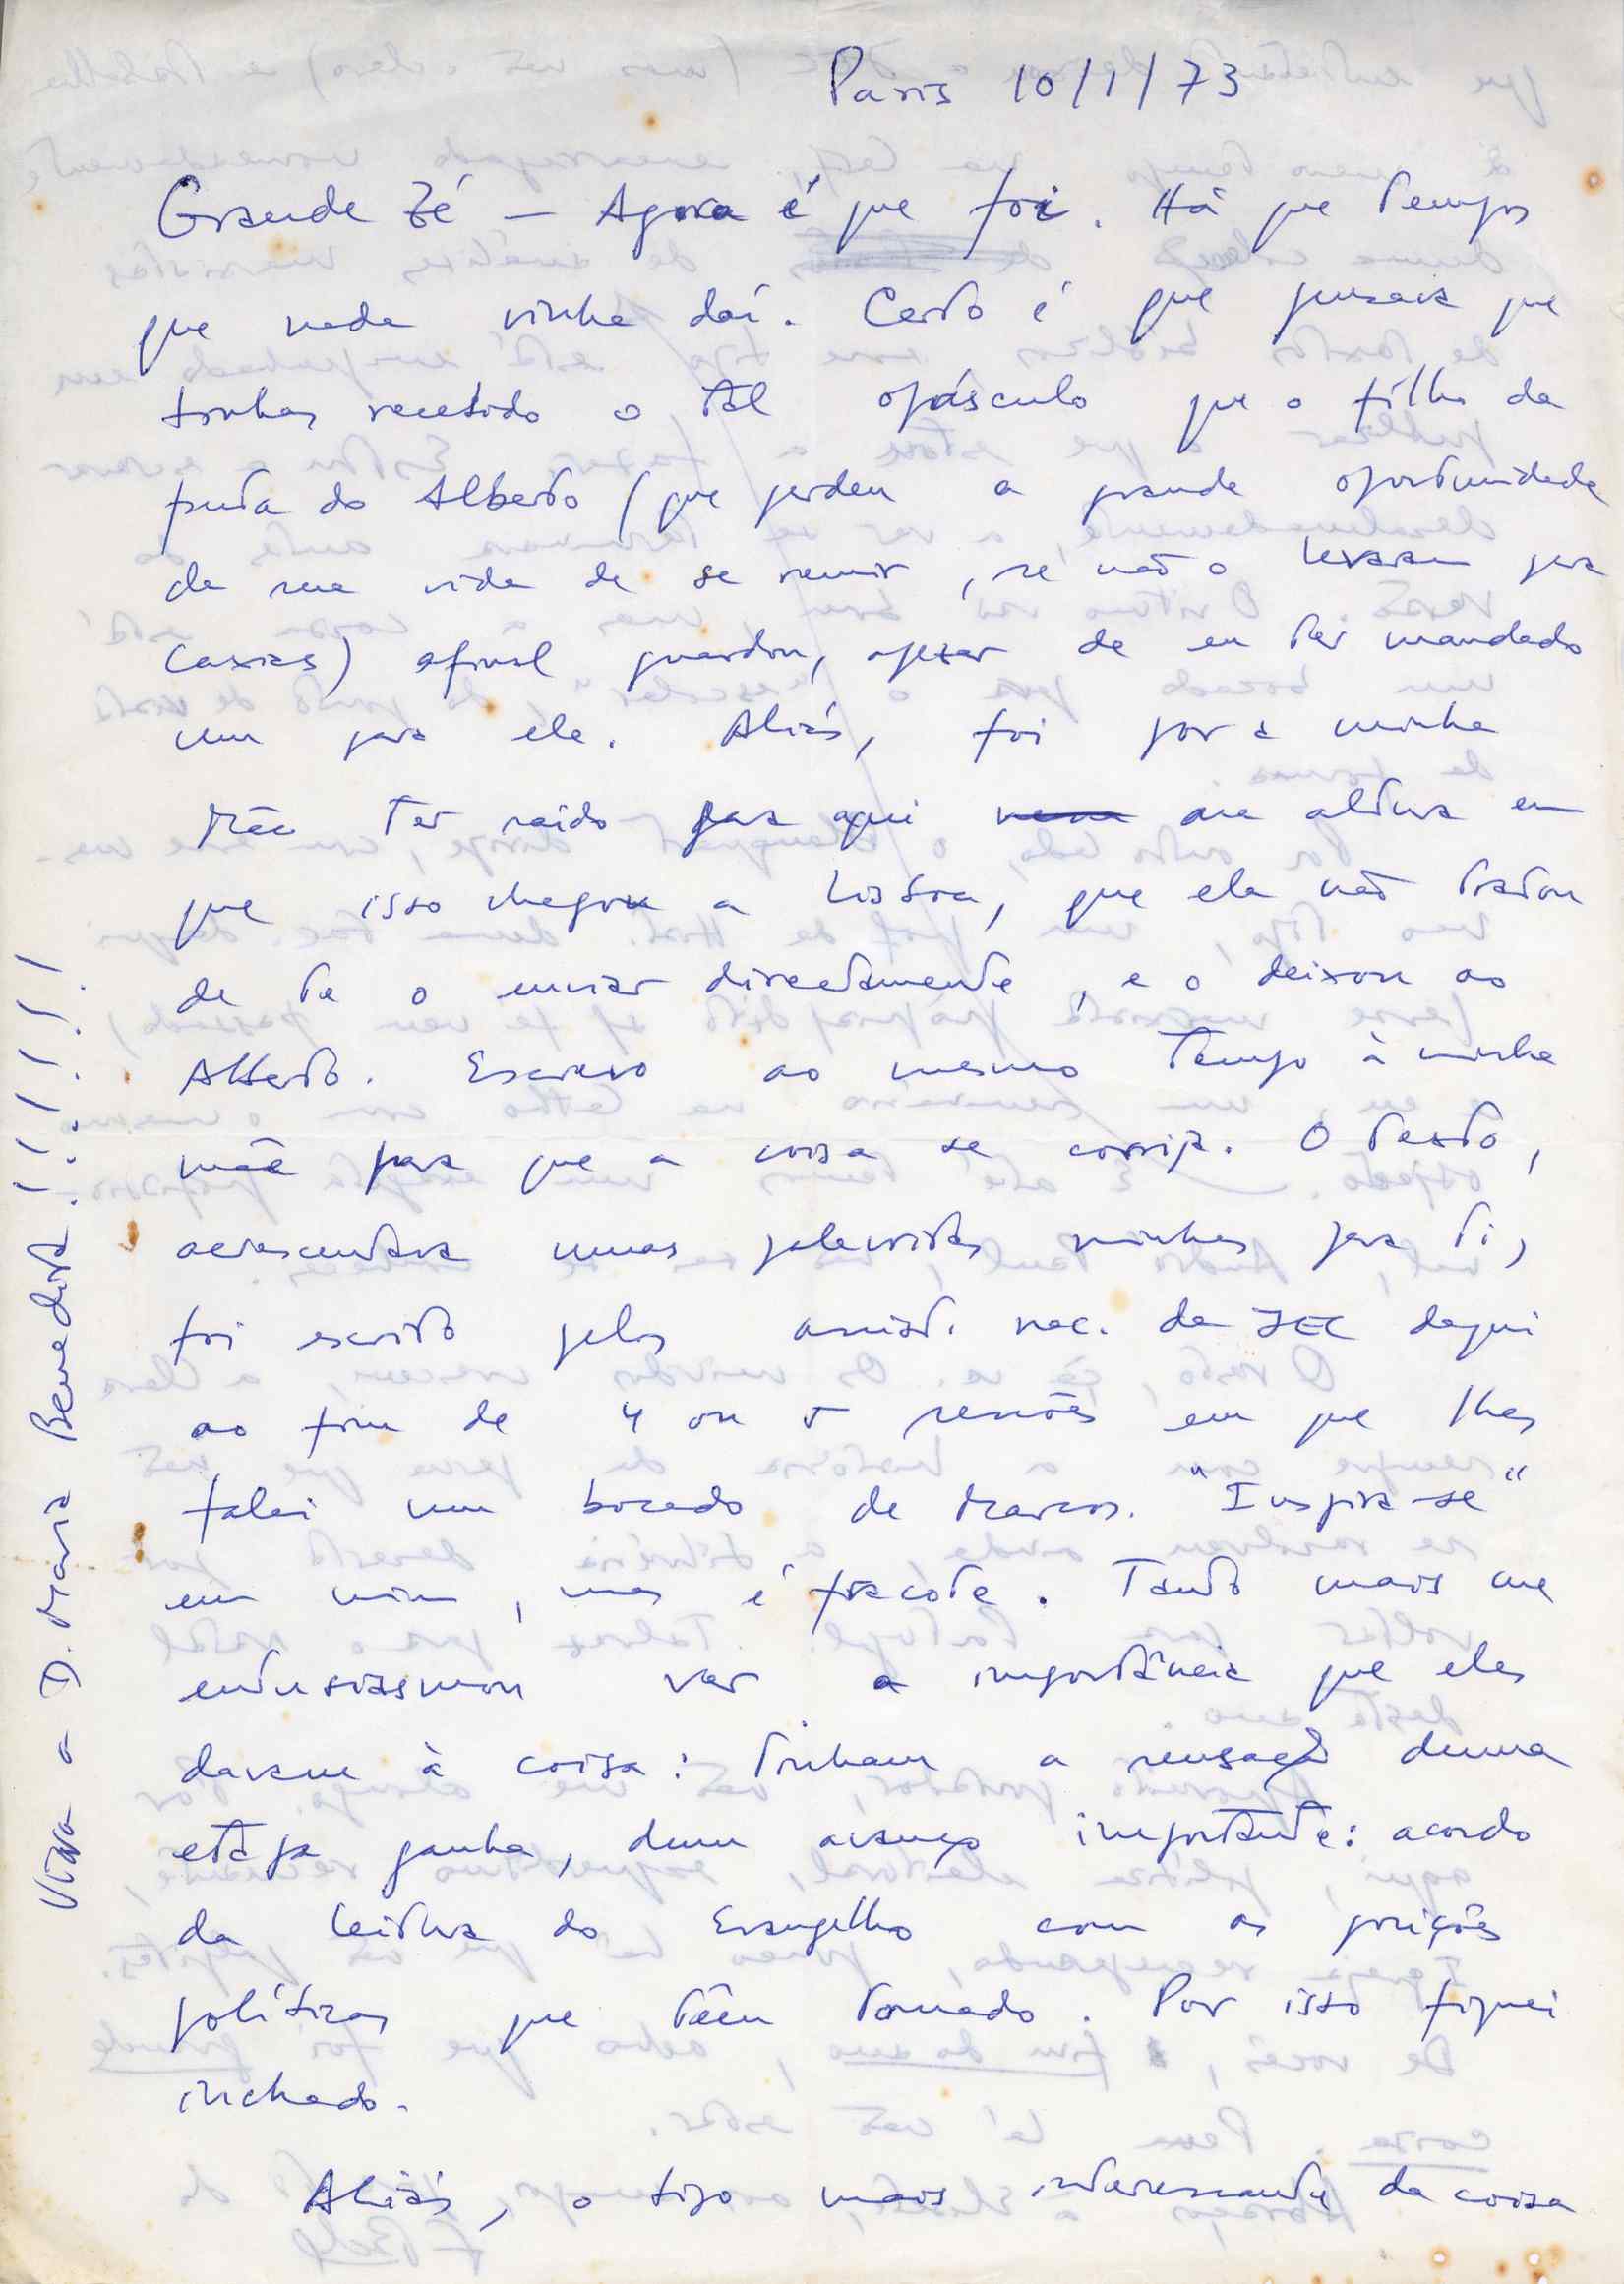 Paris 10/1/73
Grande Zé — Agora é que foi. Há que tempos
que nada vinha daí. Certo é que pensava que
tinhas recebido o tal opúsculo que o filho da
puta do Alberto (que perdeu a grande oportunidade
da sua vida de se remir, se não o levaram para
Caxias) afinal guardou, apesar de eu ter mandado
um para ele. Aliás, foi por a minha
Mãe ter saído para aqui na altura em
que isso chegou a Lisboa, que ela não tratou
de te o enviar directamente, e o deixou ao
Alberto. Escrevo ao mesmo tempo à minha
mãe para que a coisa se corrija. O texto,
acrescentava umas palavritas minhas para ti,
foi escrito pelos assist. nac. da JEC daqui
ao fim de 4 ou 5 sessões em que lhes
falei um bocado de Marcos. "Inspira-se"
em mim, mas é fracote. Tanto mais me
entusiasmou ver a importância que eles
davam à coisa: tinham a sensação duma
etapa ganha, dum avanço importante: acordo
da leitura do Evangelho com as posições
políticas que têm tomado. Por isso fiquei
inchado.
Aliás, o tipo mais interessante da coisa
Viva a D. Maria Benedita!!!!!!!